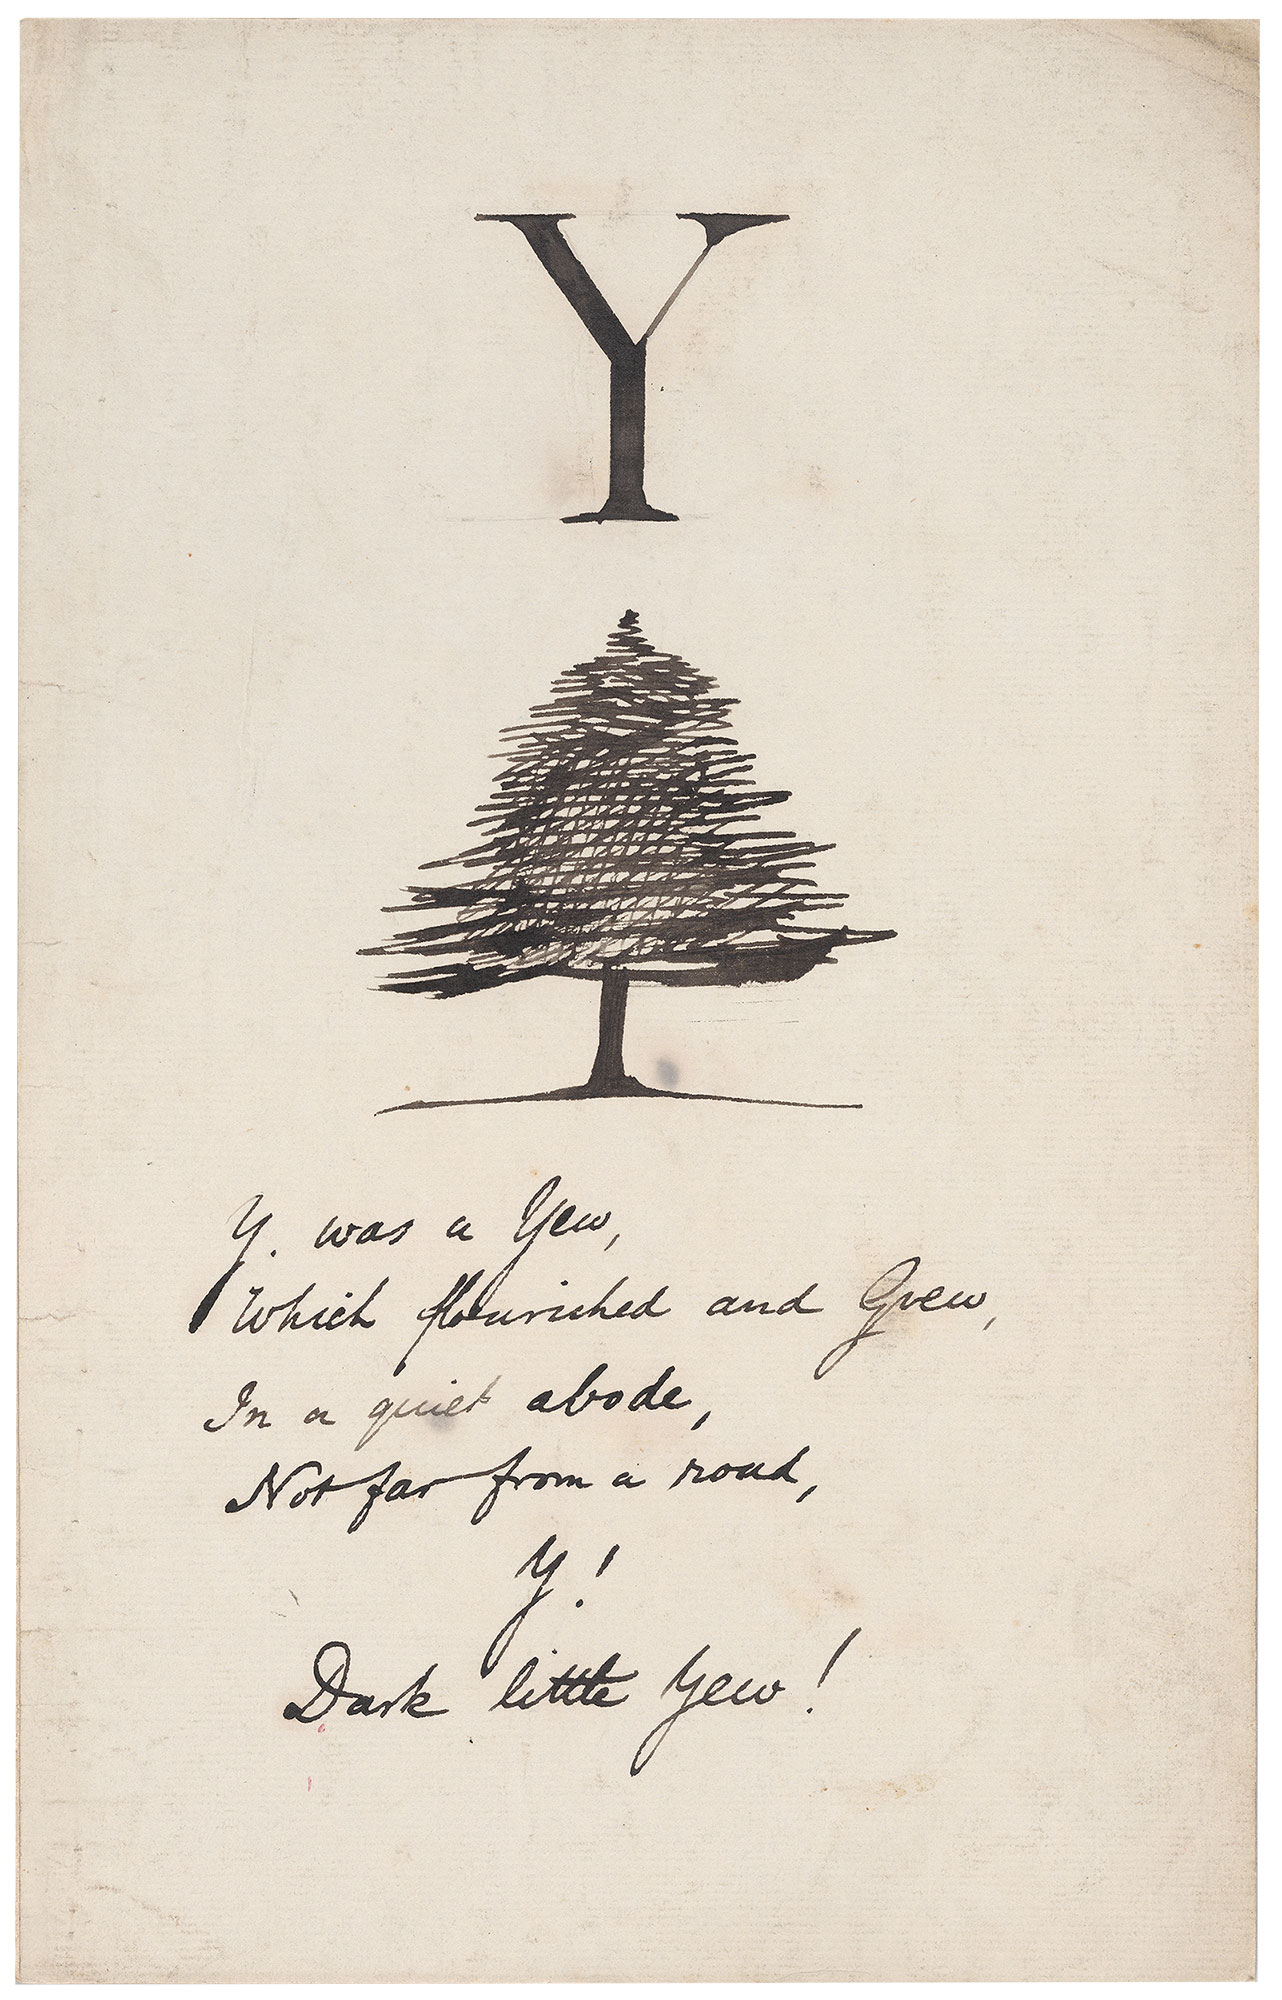 Y
Y. was a Yew,
Which flourished and Grew,
In a quiet abode,
Not far from a road,
Y!
Dark little Yew!